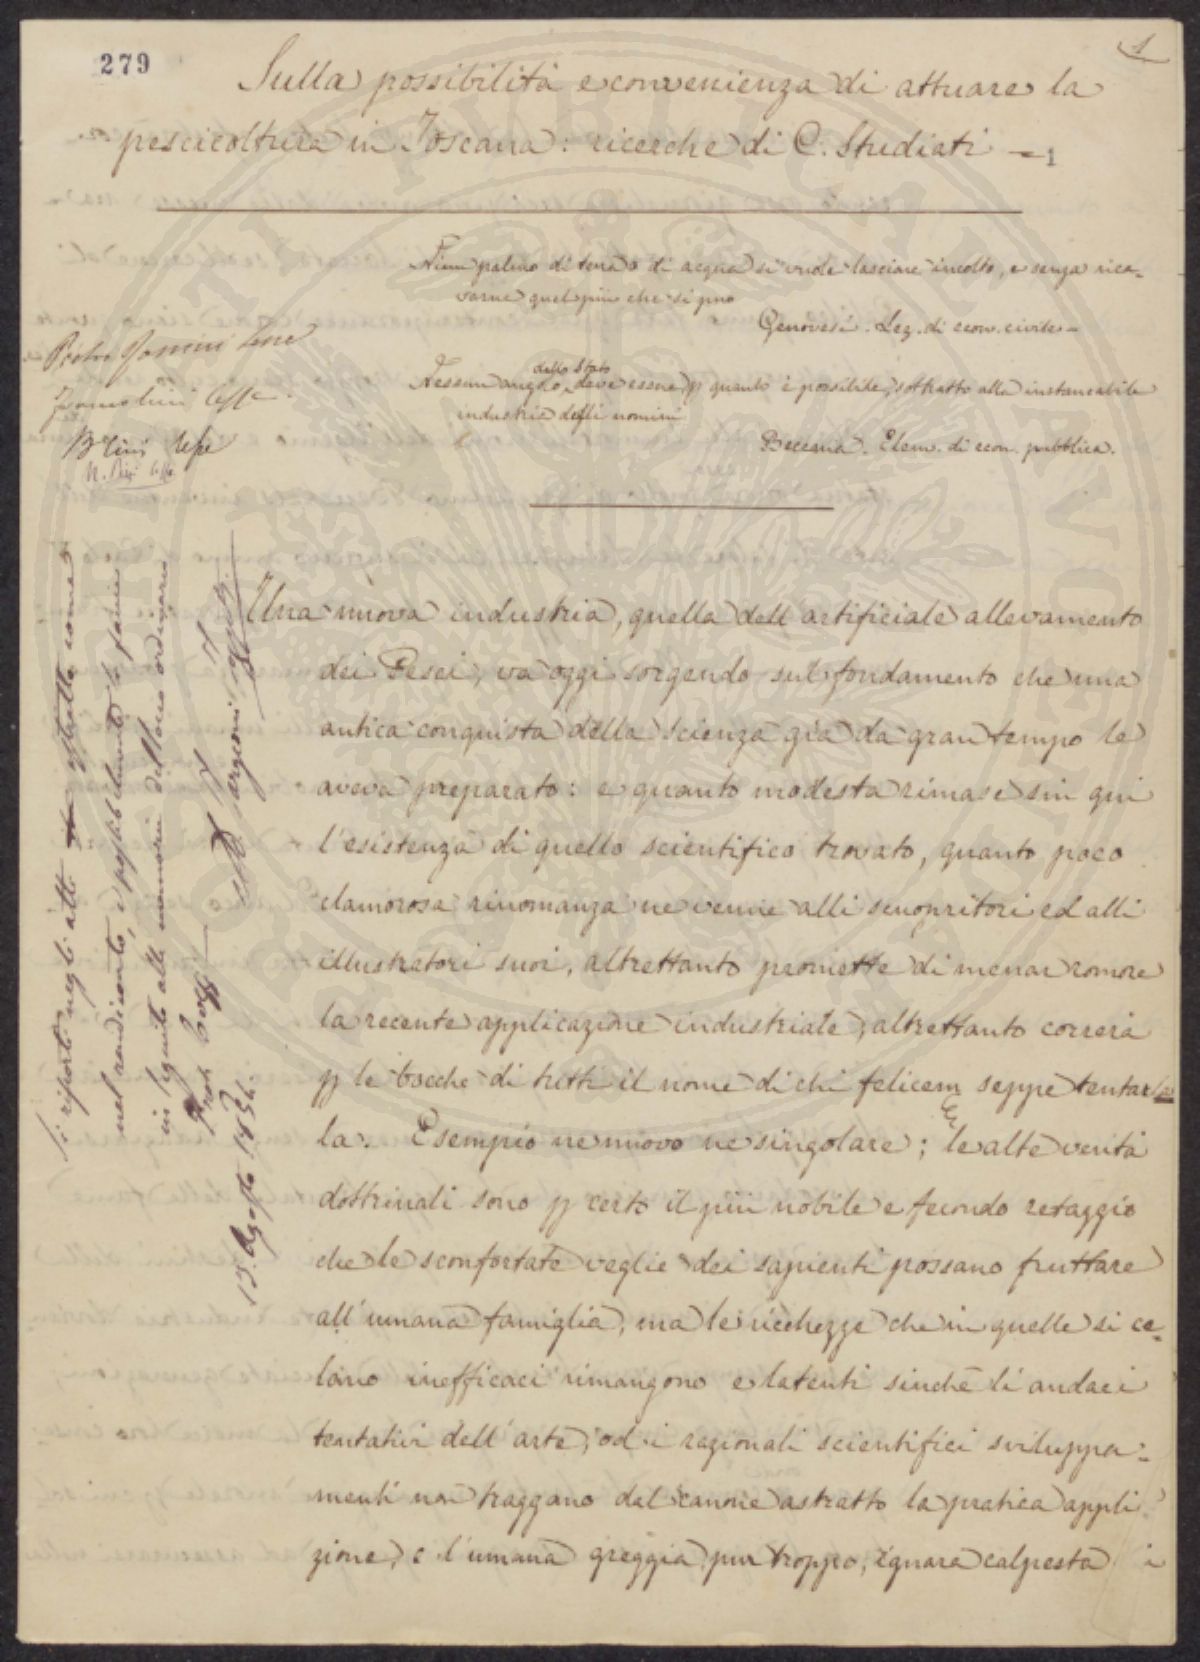 279
1
Sulla possibilità e convenienza di attuare la
pescicoltura in Toscana: ricerche di C. Studiati — 1
Niun palmo di terra o di acqua si vuole lasciare incolto, e senza rica-
varne quel più che si può
Genovesi. Lez. di econ. civile —
dello Stato
Nessun angolo deve essere p quanto è possibile, sottratto alla instancabile
industria degli uomini
Beccaria. Elem. di econ. pubblica.
Una nuova industria, quella dell'artificiale allevamento
dei Pesci, va oggi sorgendo sul fondamento che una
antica conquista della scienza già da gran tempo le
aveva preparato: e quanto modesta rimase sin qui
l'esistenza di quello scientifico trovato, quanto poco
clamorosa rinomanza ne venne alli scuopritori ed alli
illustratori suoi, altrettanto promette di menar romore
la recente applicazione industriale, altrettanto correrà
p le bocche di tutti il nome di chi felicem seppe tentar
la. Esempio ne nuovo ne singolare; E le alte verità
dottrinali sono p certo il più nobile e fecondo retaggio
che le sconfortate veglie dei sapienti possano fruttare
all'umana famiglia, ma le ricchezze che in quelle si ce-
lano inefficaci rimangono e latenti sinchè li audaci
tentativi dell'arte, od i razionali scientifici sviluppa-
menti non traggano dal canone astratto la pratica appli
zione, e l'umana greggia, pur troppo, ignara calpesta i
Si riporti negli atti come
nel rendiconto, e possibilmente
in seguito alle memorie dell'anno ordinario
13. Agosto 1856.